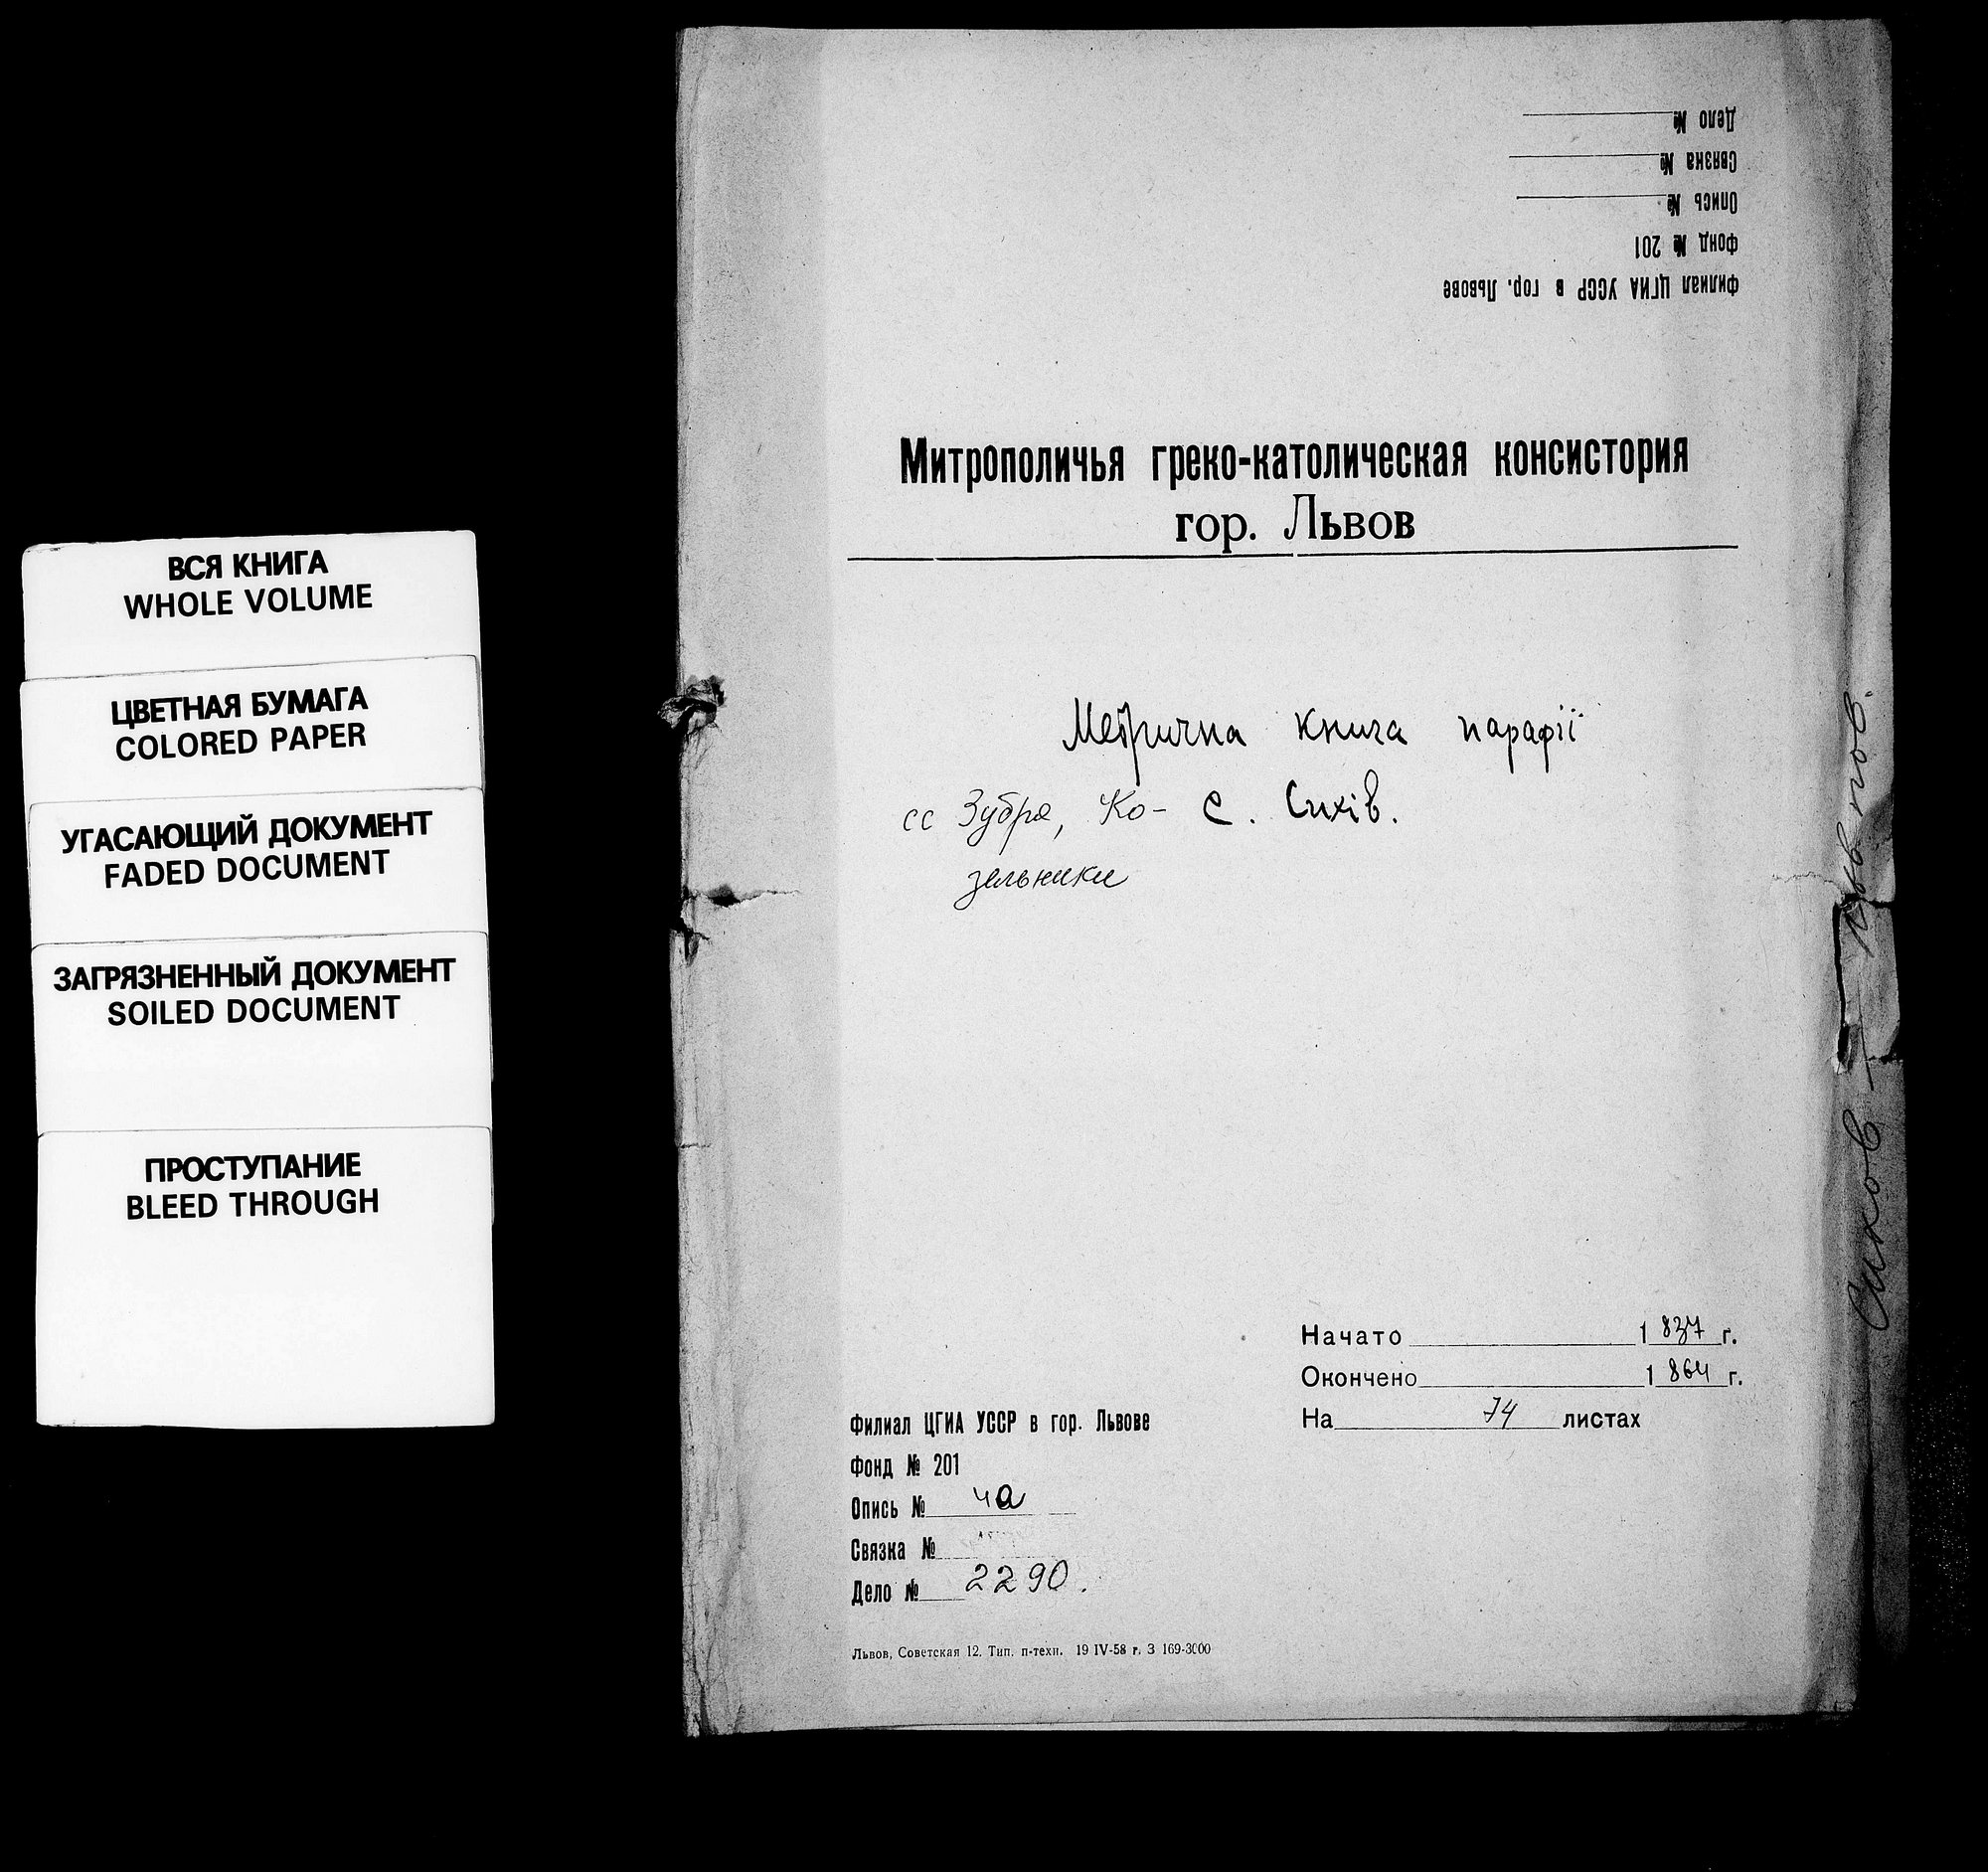 ВСЯ КНИГА
WHOLE VOLUME
ЦВЕТНАЯ БУМАГА
COLORED PAPER
УГАСАЮЩИЙ ДОКУМЕНТ
FADED DOCUMENT
ЗАГРЯЗНЕННЫЙ ДОКУМЕНТ
SOILED DOCUMENT
ПРОСТУПАНИЕ
BLEED THROUGH
Дело №
Связка №
Опись №
Фонд № 201
Филиал ЦГИА УССР в гор. Львове
Митрополичья греко-католическая консистория
гор. Львов
Метрична книга парафії
сс Зубря, Ко- С. Сихів.
зельники
Начато 1837 г.
Окончено 1864 г.
На 74 листах
Филиал ЦГИА УССР в гор. Львове
Фонд № 201
Опись № 4а
Связка №
Дело № 2290.
Львов, Советская 12. Тип. п-техн. 19 IV-58 г. З 169-3000
Сихов —